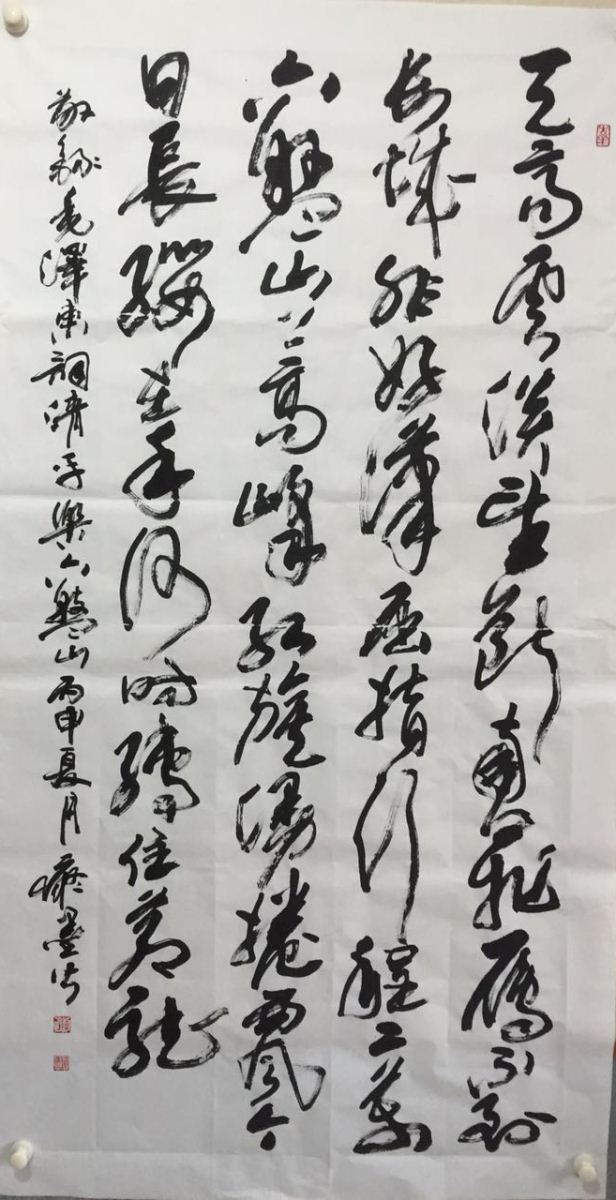 天高雲淡望斷南飛雁不到
長城非好漢屈指行程二萬
六盤山上高峰紅旗漫捲西風今
日長纓在手何時縛住蒼龍
敬錄毛澤東詞清平樂六盤山丙申夏月墨书